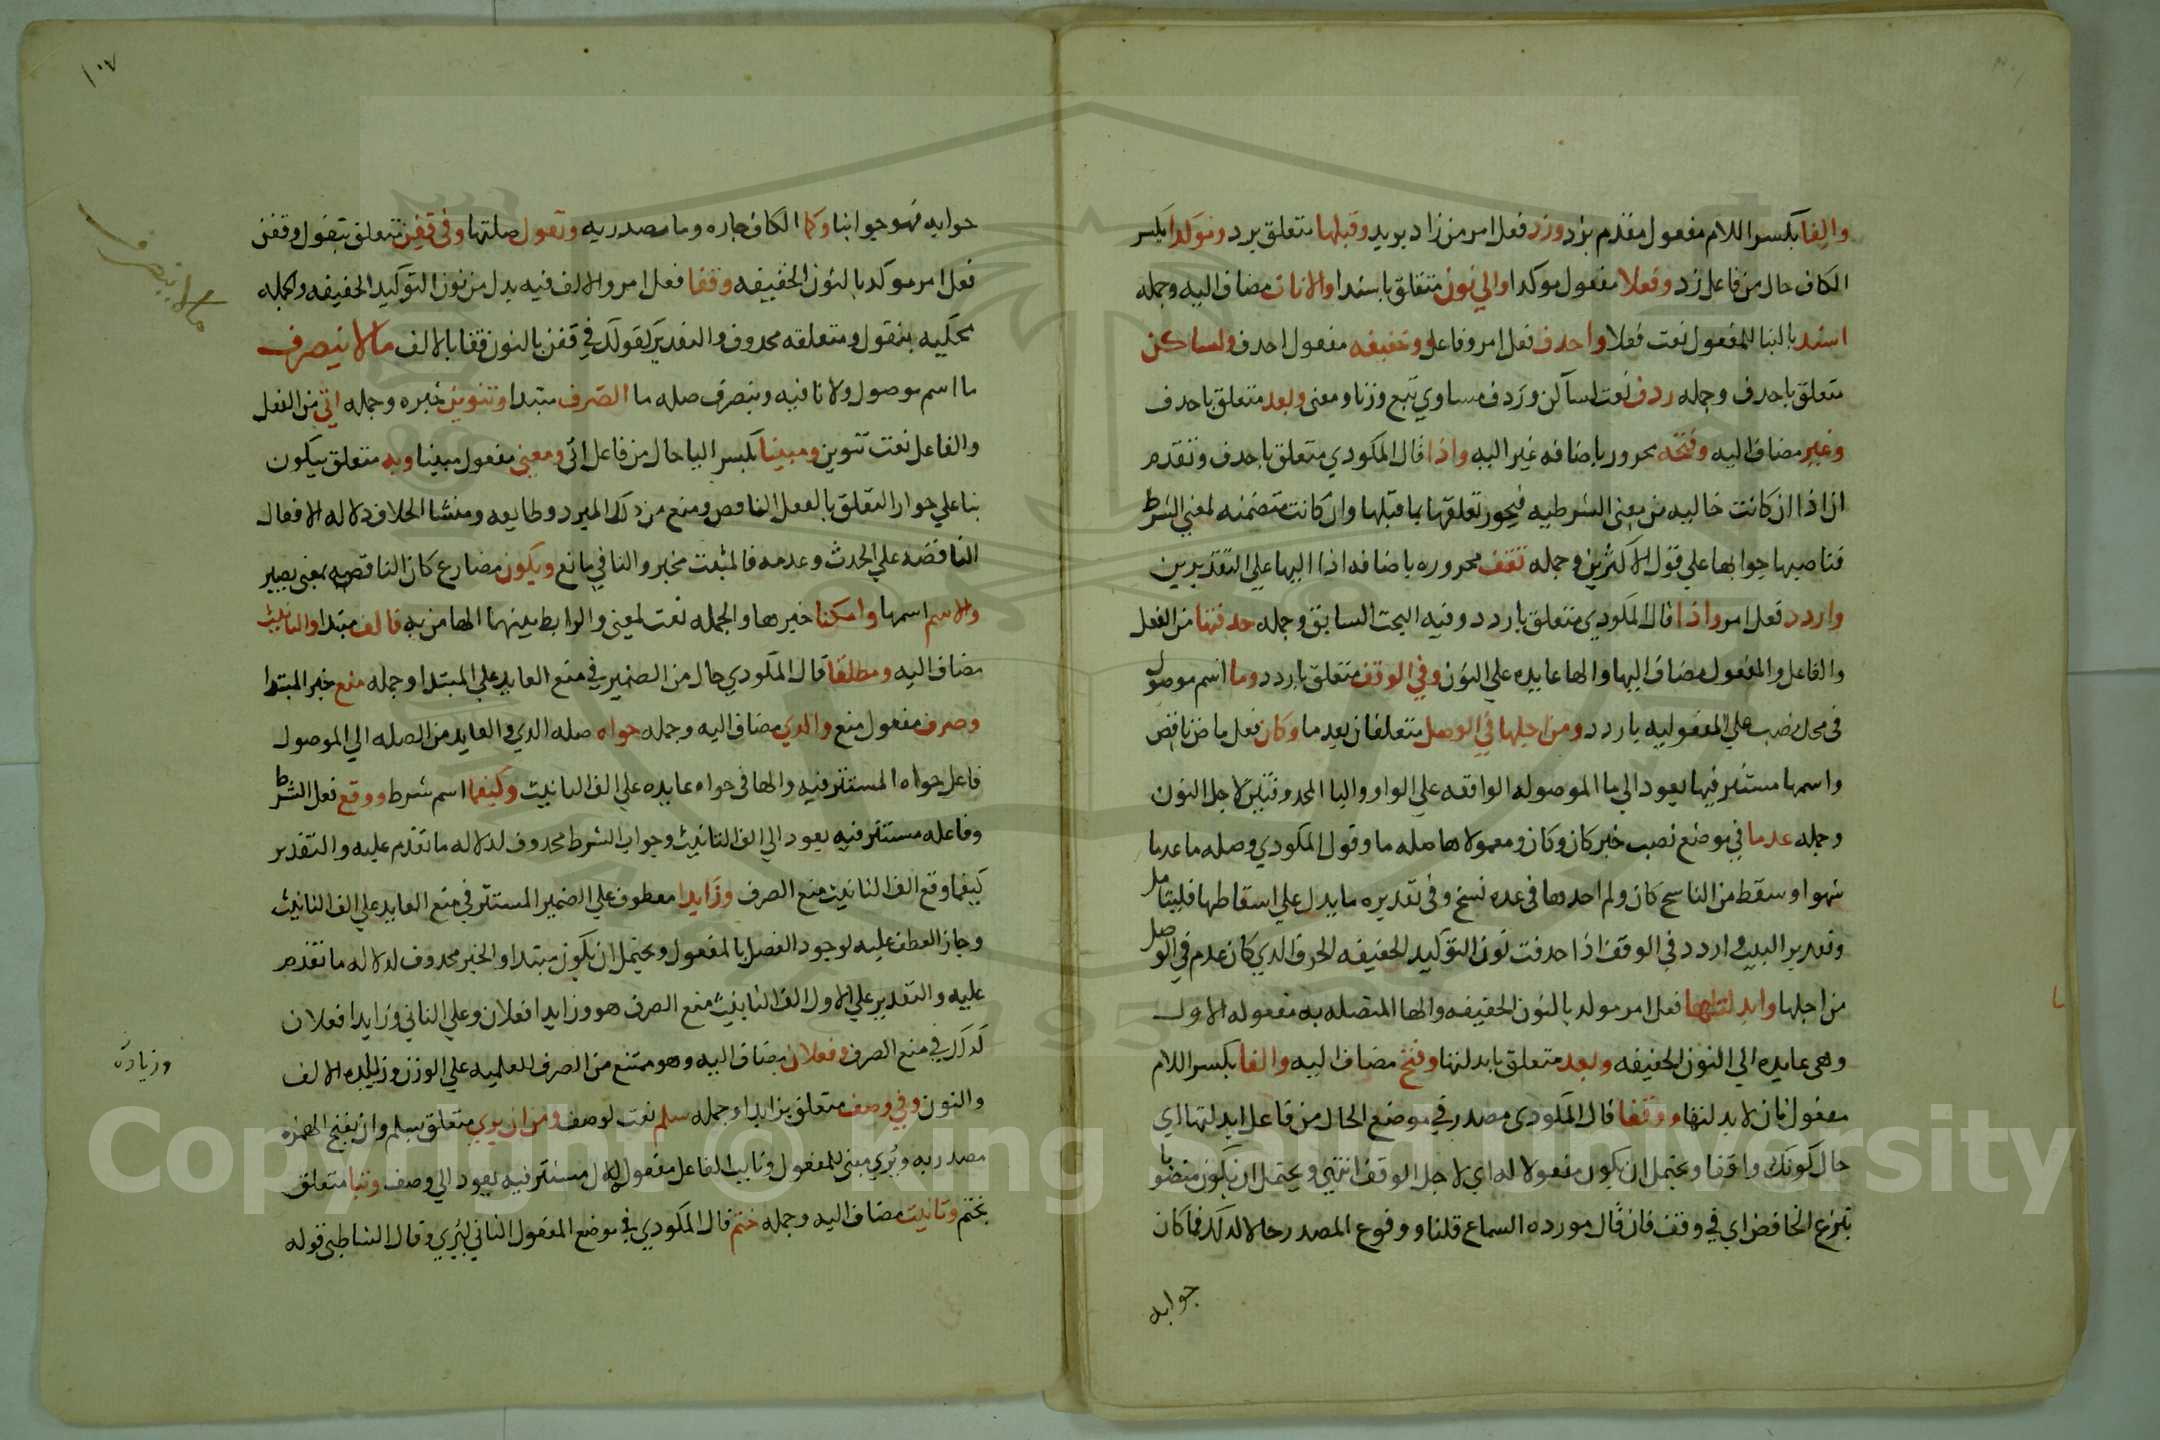 والفا بكسر اللام مفعول مقدم بزد وزد فعل امر من زاد يزيد وقبلها متعلق بزد ومؤكدا بكسر
الكاف حال من فاعل زد وفعلا مفعول موكدا والي نون متعلق باسندا والاناث مضاف اليه وجمله
اسند بالبنا للمفعول نعت فعلا واحدف فعل امر وفاعل وخفيفه مفعول احدف ولساكن
متعلق باحدف وجمله ردف نعت لساكن وردف مساوي تبع وزنا ومعنى وبعد متعلق باحدف
وغير مضاف اليه وفتحه مجرور باضافه غير اليه واذا قال المكودي متعلق باحدف وتقدم
ان اذا ان كانت خاليه من معنى الشرطيه فيجوز تعلقها بما قبلها وان كانت متضمنه لمعني الشرط
فناصبها جوابها علي قول الاكثرين وجمله تقف مجروره باضافه اذا اليها علي التقديرين
واردد فعل امر واذا قال المكودي متعلق باردد وفيه البحث السابق وجمله حدفتها من الفعل
والفاعل والمفعول مضاف اليها والها عايده علي النون وفي الوقف متعلق باردد وما اسم موصول
في محل نصب علي المفعوليه باردد ومن اجلها في الوصل متعلقان بعدما وكان فعل ماض ناقص
واسمها مستتر فيها يعود الي ما الموصوله الواقعه علي الواو واليا المحدوفتين لاجل النون
وجمله عدما في موضع نصب خبر كان وكان ومعمولاها صله ما وقول المكودي وصله ما عدما
سهوا وسقط من الناسخ كان ولم احدها في عده نسخ وفي تقديره ما يدل علي اسقاطها فليتامل
وتقدير البيت واردد في الوقف اذا حدفت نون التوكيد الخفيفه الحرف الدي كان عدم في الوصل
من اجلها وابدلنها فعل امر موكد بالنون الخفيفه والها المتصله به مفعوله الاول
وهي عايده الي النون الخفيفه وبعد متعلق بابدلنها وفتح مضاف اليه والفا بكسر اللام
مفعول ثان لابدلنها ووقفا قال المكودي مصدر في موضع الحال من فاعل ابدلنها اي
حال كونك واقفا ويحتمل ان يكون مفعولا له اي لاجل الوقف انتهي ويحتمل ان يكون منصوبا
بنزع الخافض اي في وقف فان قال مورده السماع قلنا ووقوع المصدر حالا لدلك فما كان
جوابه
١٠٧
جوابه فهو جوابنا وكما الكاف جاره وما مصدريه وتقول صلتها وفي قفن متعلق بتقول وقفن
فعل امر موكد بالنون الخفيفه وقفا فعل امر والالف فيه بدل من نون التوكيد الخفيفه والجمله
محكيه بتقول ومتعلقه محدوف والتقدير كقولك في قفن بالنون قفا بالالف ما لا ينصرف
ما اسم موصول ولا نافيه وينصرف صله ما الصرف مبتدا وتنوين خبره وجمله اتى من الفعل
والفاعل نعت تنوين ومبينا بكسر اليا حال من فاعل اتى ومعنى مفعول مبينا وبه متعلق بيكون
بنا علي جواز التعلق بالفعل الناقص ومنع من دلك المبرد وطايفه ومنشا الخلاف دلاله الافعال
الناقصه علي الحدث وعدمه فالمثبت مخبر والنافي مانع ويكون مضارع كان الناقصه بمعنى يصير
والاسم اسمها وامكنا خبرها والجمله نعت لمعنى والرابط بينهما الها من به فالف مبتدا والتانيث
مضاف اليه ومطلقا قال المكودي حال من الضمير في منع العايد علي المبتدا وجمله منع خبر المبتدا
وصرف مفعول منع والدي مضاف اليه وجمله حواه صله الدي والعايد من الصله الي الموصول
فاعل حواه المستتر فيه والها في حواه عايده علي الف التانيث وكيفما اسم شرط ووقع فعل الشرط
وفاعله مستتر فيه يعود الي الف التانيث وجواب الشرط محدوف لدلاله ما تقدم عليه والتقدير
كيفما وقع الف التانيث منع الصرف وزايدا معطوف علي الضمير المستتر في منع العايد علي الف التانيث
وجاز العطف عليه لوجود الفصل بالمفعول ويحتمل ان يكون مبتدا والخبر محدوف لدلاله ما تقدم
عليه والتقدير علي الاول الف التانيث منع الصرف هو وزايدا فعلان وعلي الثاني وزايدا فعلان
كدلك في منع الصرف وفعلان مضاف اليه وهو ممتنع من الصرف للعلميه علي الوزن وزياده الالف
والنون وفي وصف متعلق بزايدا وجمله سلم نعت لوصف ومن ان يري متعلق بسلم وان بفتح الهمزه
مصدريه ويري مبنى للمفعول ونايب الفاعل مفعول الاول مستتر فيه يعود الي وصف وبتا متعلق
بختم وتانيث مضاف اليه وجمله ختم قال المكودي في موضع المفعول الثاني ليري وقال الشاطبي قوله
ما لا ينصرف
وزيادة
Copyright © King Saud University
1957